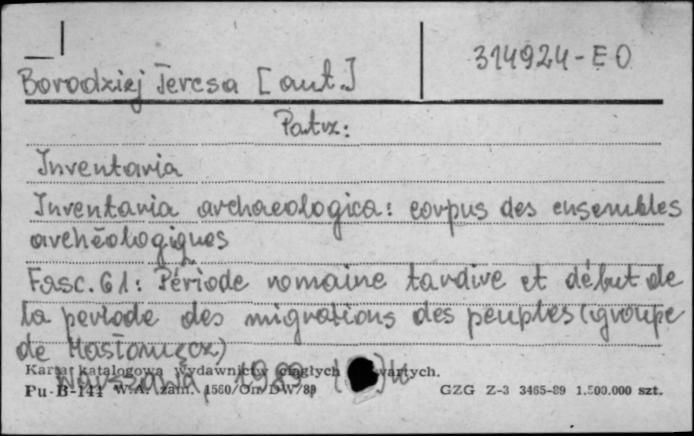 314924-EO
Borodziej Teresa [aut.]
Patrz:
Inventaria
Inventaria archaeologica: corpus des ensembles
archéologiques
Fasc. 61: Période romaine tardive et début de
la periode des migrations des peuples (groupe
de Masłomęcz)
Warszawa, 1989
Karta katalogowa wydawnictw ciągłych
Pu-B-144 W.A. zam. 1560/On/DW/89 GZG Z-3 3465-89 1.500.000 szt.